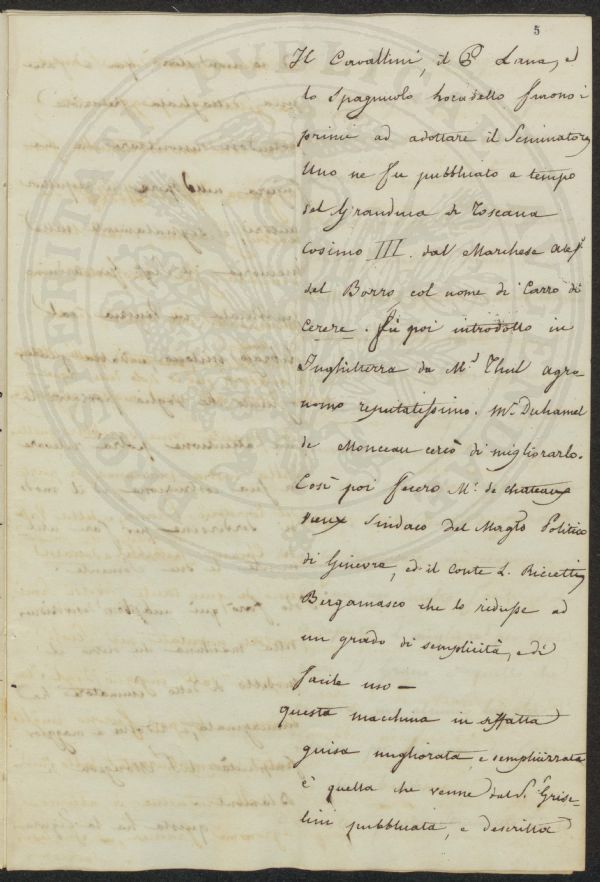 5
Il Cavallini, il P Lana, e
lo Spagnuolo Locadello furono i
primi ad adottare il Seminatore
Uno ne fu pubbliato a tempo
del Granduca di Toscana
Cosimo III. dal Marchese
del Borro col nome di Carro di
Cerere. Fù poi introdotto in
Inghilterra da Mr. Thul agro-
nomo reputatissimo. Mr. Duhamel
de Monceau cercò di migliorarlo.
Così poi fecero Mr. de chateaux
vieux Sindaco del Magto Politico
di Ginevra, ed il Conte L. Ricietti
Bergamasco che lo ridusse ad
un grado di semplicità, e di
facile uso —
questa macchina in siffatta
guisa migliorata, e semplizzata
è quella che venne dal S.r Grise-
lini pubbliata, e descritta
PROSPERITATI PVBLICAE